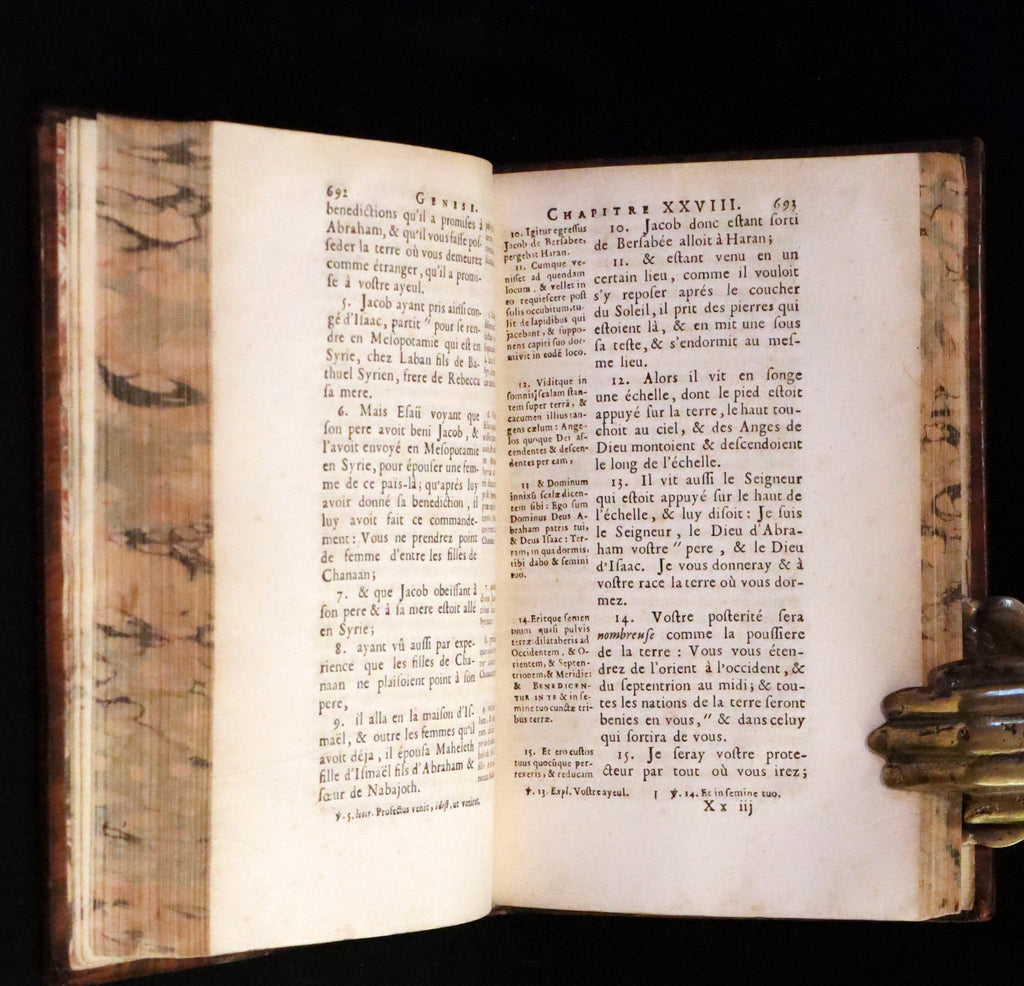 692
GENESE.
benedictions qu'il a promises à
Abraham, & qu'il vous fasse pos-
seder la terre où vous demeurez
comme étranger, qu'il a promi-
se à vostre ayeul.
5. Jacob ayant pris ainsi con-
gé d'Isaac, partit " pour se ren-
dre en Mesopotamie qui est en
Syrie, chez Laban fils de Ba-
thuel Syrien, frere de Rebecca
sa mere.
6. Mais Esaü voyant que
son pere avoit beni Jacob, &
l'avoit envoyé en Mesopotamie
en Syrie, pour épouser une fem-
me de ce païs-là; qu'aprés luy
avoir donné sa benediction, il
luy avoit fait ce commande-
ment: Vous ne prendrez point
de femme d'entre les filles de
Chanaan;
7. & que Jacob obeïssant à
son pere & à sa mere estoit allé
en Syrie;
8. ayant vû aussi par expe-
rience que les filles de Cha-
naan ne plaisoient point à son
pere,
9. il alla en la maison d'Is-
maël, & outre les femmes qu'il
avoit déja, il épousa Maheleth
fille d'Ismaël fils d'Abraham &
sœur de Nabajoth.
℣. 5. letter. Profectus venit, idest, ut veniret.
CHAPITRE XXVIII. 693
10. Igitur egressus
Jacob de Bersabee,
pergebat Haran.
11. Cumque ve-
nisset ad quendam
locum, & vellet in
eo requiescere post
solis occubitum, tu-
lit de lapidibus qui
jacebant, & suppo-
nens capiti suo dor-
mivit in eodē loco.
12. Viditque in
somnis scalam stan-
tem super terrā, &
cacumen illius tan-
gens cælum: Ange-
los quoque Dei as-
cendentes & descen-
dentes per eam,
13 & Dominum
innixū scalæ dicen-
tem sibi: Ego sum
Dominus Deus A-
braham patris tui,
& Deus Isaac: Ter-
ram, in qua dormis,
tibi dabo & semini
tuo.
14. Eritque semen
tuum quasi pulvis
terræ: dilataberis ad
Occidentem, & O-
rientem, & Septen-
trionem, & Meridie:
& BENEDICEN-
TUR IN TE & in se-
mine tuo cunctæ tri-
bus terræ.
15. Et ero custos
tuus quocūque per-
rexeris, & reducam
10. Jacob donc estant sorti
de Bersabée alloit à Haran;
11. & estant venu en un
certain lieu, comme il vouloit
s'y reposer aprés le coucher
du Soleil, il prit des pierres qui
estoient là, & en mit une sous
sa teste, & s'endormit au mes-
me lieu.
12. Alors il vit en songe
une échelle, dont le pied estoit
appuyé sur la terre, le haut tou-
choit au ciel, & des Anges de
Dieu montoient & descendoient
le long de l'échelle.
13. Il vit aussi le Seigneur
qui estoit appuyé sur le haut de
l'échelle, & luy disoit: Je suis
le Seigneur, le Dieu d'Abra-
ham vostre " pere, & le Dieu
d'Isaac. Je vous donneray & à
vostre race la terre où vous dor-
mez.
14. Vostre posterité sera
nombreuse comme la poussiere
de la terre: Vous vous éten-
drez de l'orient à l'occident, &
du septentrion au midi; & tou-
tes les nations de la terre seront
benies en vous, " & dans celuy
qui sortira de vous.
15. Je seray vostre prote-
cteur par tout où vous irez;
℣. 13. Expl. Vostre ayeul. | ℣. 14. Et in semine tuo.
Xx iij